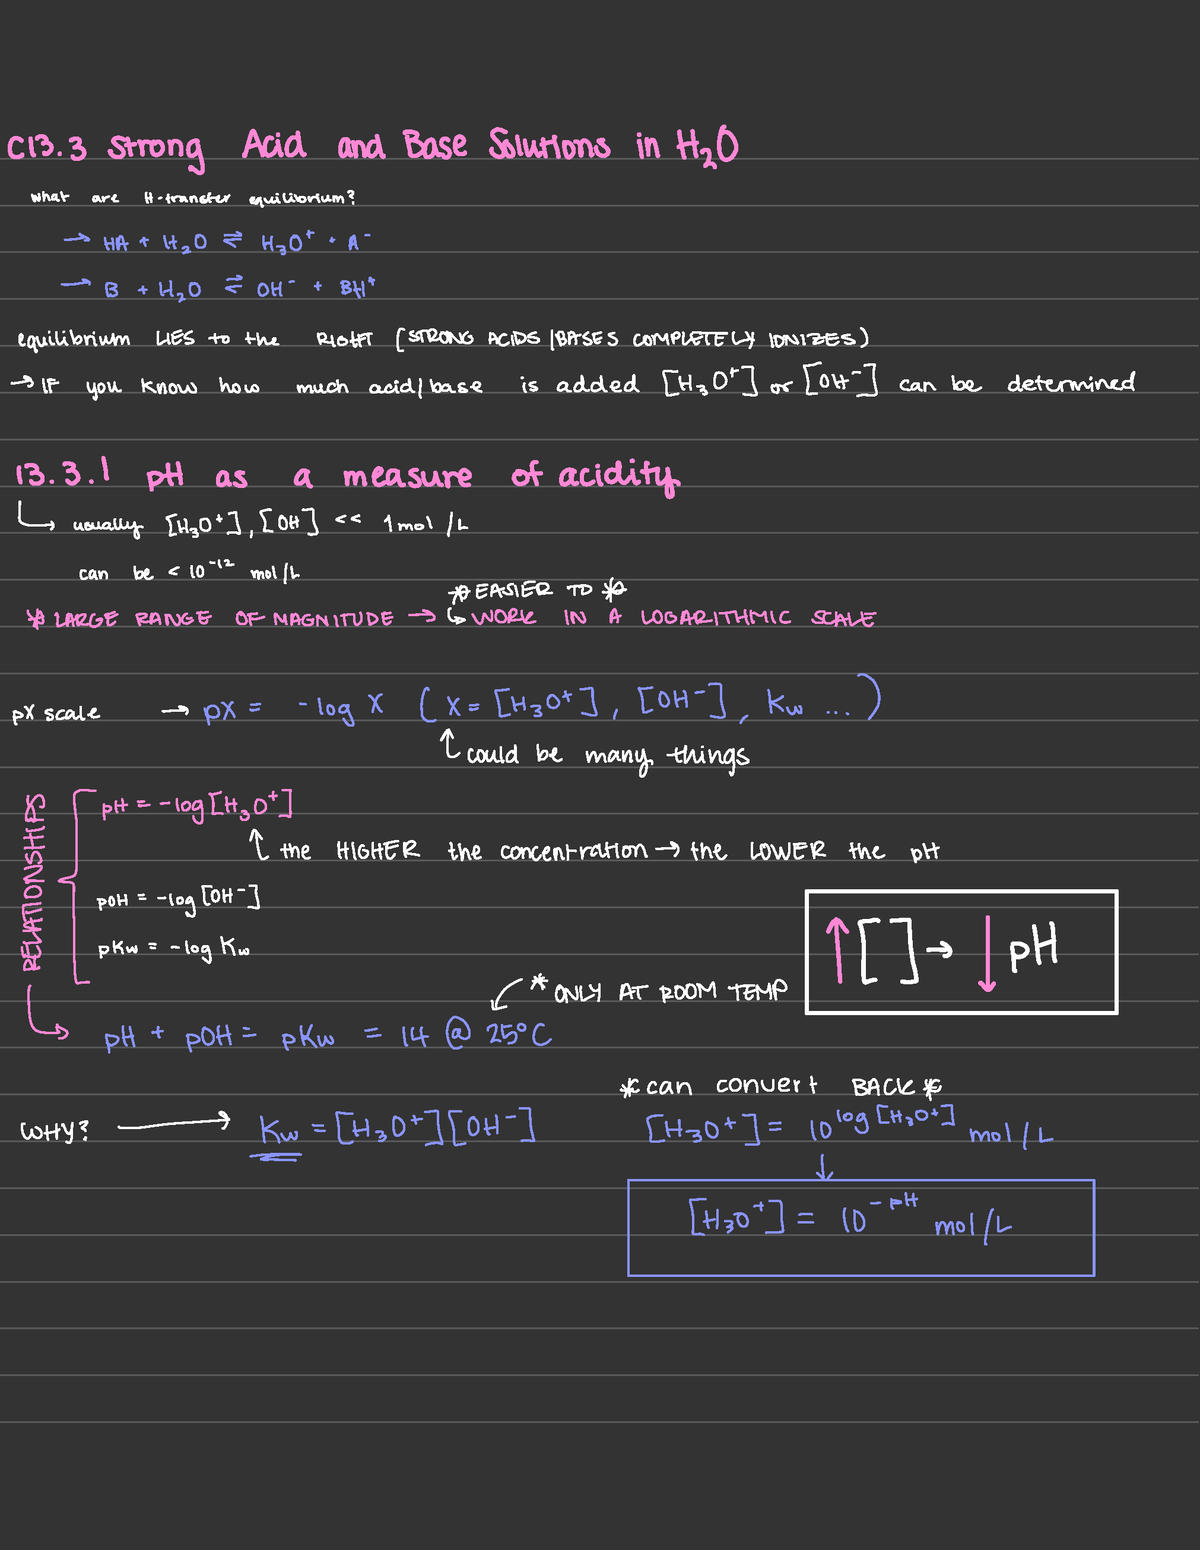 C13.3 Strong Acid and Base Solutions in H₂O
what are H-transfer equilibrium?
→ HA + H₂O ⇌ H₃O⁺ + A⁻
→ B + H₂O ⇌ OH⁻ + BH⁺
equilibrium LIES to the RIGHT (STRONG ACIDS/BASES COMPLETELY IONIZES)
→ IF you know how much acid/base is added [H₃O⁺] or [OH⁻] can be determined
13.3.1 pH as a measure of acidity
↳ usually [H₃O⁺], [OH] << 1 mol/L
can be < 10⁻¹² mol/L
* EASIER TO *
* LARGE RANGE OF MAGNITUDE → ↳ WORK IN A LOGARITHMIC SCALE
pX scale → pX = -log X (X = [H₃O⁺], [OH⁻], Kw ...)
↑ could be many things
RELATIONSHIPS
pH = -log [H₃O⁺]
↑ the HIGHER the concentration → the LOWER the pH
pOH = -log [OH⁻]
pKw = -log Kw
↑ [ ] → ↓ pH
* ONLY AT ROOM TEMP
pH + pOH = pKw = 14 @ 25°C
* can convert BACK *
WHY? → Kw = [H₃O⁺][OH⁻]
[H₃O⁺] = 10^log [H₃O⁺] mol/L
↓
[H₃O⁺] = 10^-pH mol/L